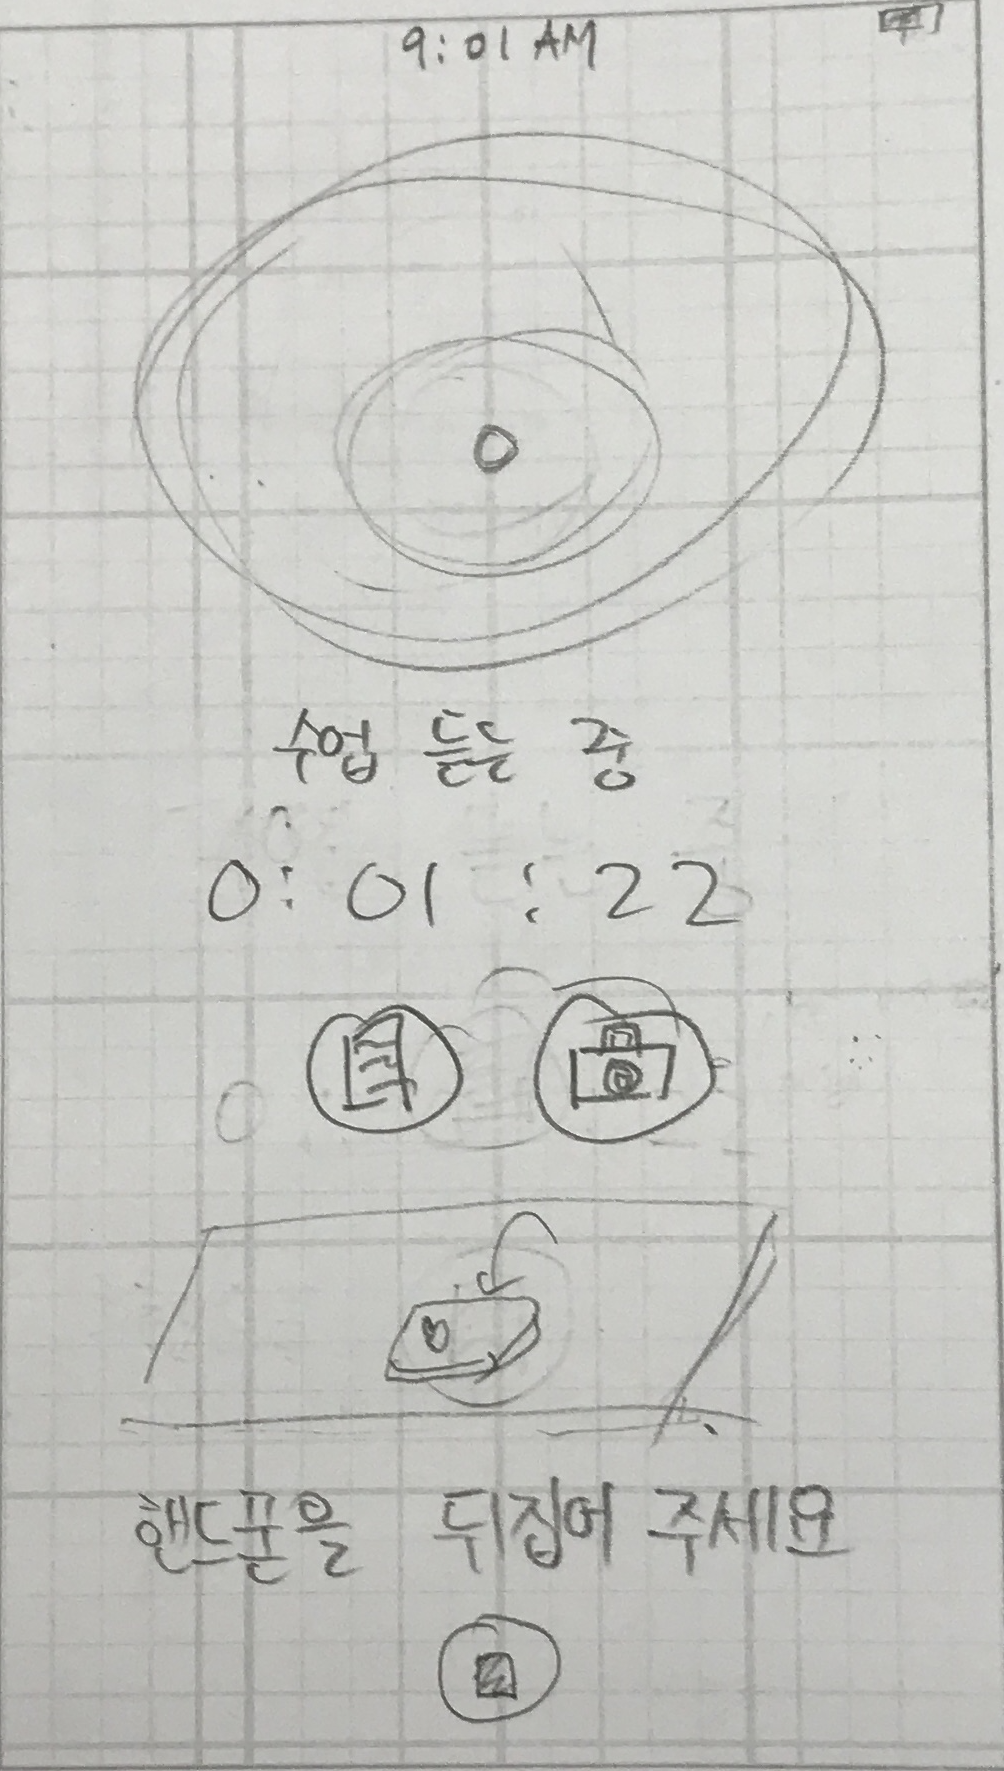 9:01 AM
수업 듣는 중
0:01:22
핸드폰을 뒤집어 주세요